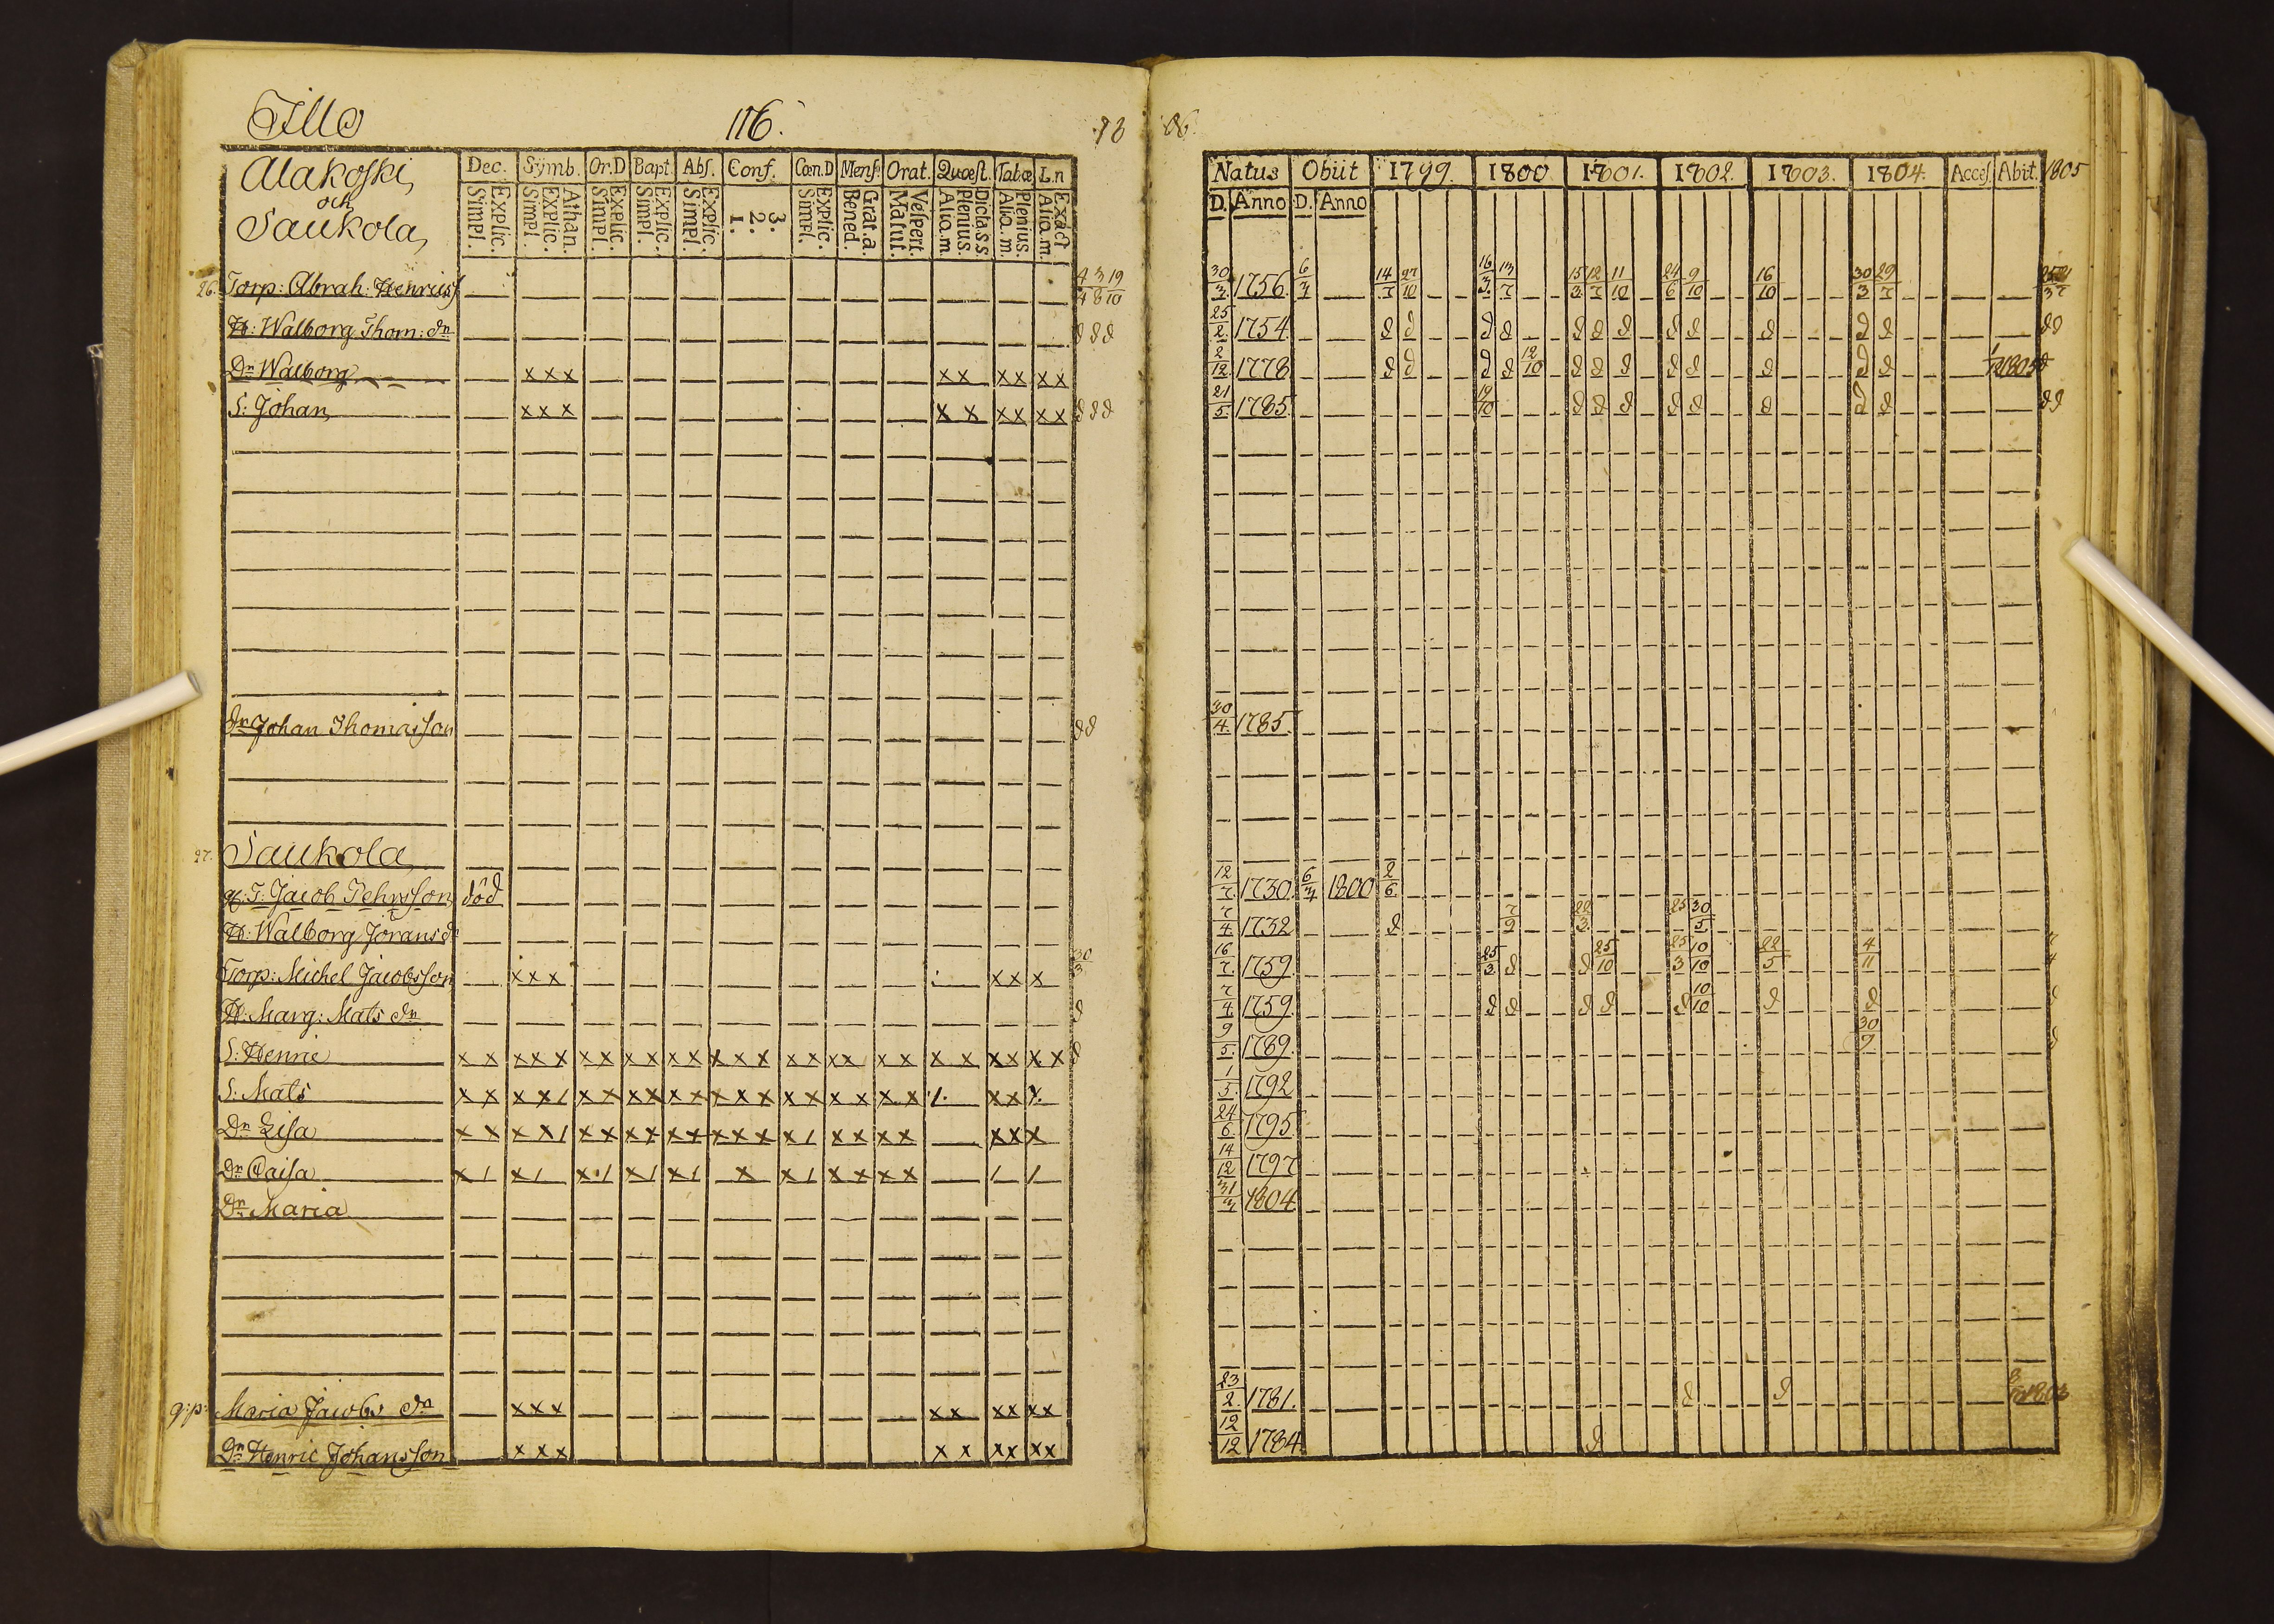 Tillo 116.
Alakoski
och
Saukola
Dec. Symb. Or.D Bapt. Abs. Conf. Cœn.D Mens. Orat. Quæst. Tabæ L.n
Explic. Simpl. Athan. Explic. Simpl. Explic. Simpl. Explic. Simpl. Explic. Simpl. 3. 2. 1. Explic. Simpl. Grat.a. Bened. Vespert. Matut. Dictass. Plenius. Alio.m. Plenius. Alio.m. Exact Alio.m.
26. Torp: Abrah: Henricss
H: Walborg Thom: dr
Dr Walborg xxx xx xx xx
S: Johan xxx xx xx xx
Dr Johan Thomasson
27. Saukola
g: T: Jacob Pehrsson död
H: Walborg Jörans dr
Torp: Michel Jacobsson xxx xx x
H: Marg: Mats dr
S: Henric xx xxx xx xx xx xxx xx xx xx xx xx xx
S: Mats
Dr Lisa
Dr Caisa
Dr Maria
g:p: Maria Jacobs dr xxx xx xx xx
Dr Henric Johansson xxx xx xx xx
Natus Obiit 1799. 1800. 1801. 1802. 1803. 1804. Acces. Abit. 1805
D. Anno D. Anno
30/3 1756. 14/7 27/10 16/3 13/7 15/3 12/7 11/10 24/6 9/10 16/10 30/3 29/7
25/2 1754.
2/12 1778 12/10
21/5 1785. 19/10
30/4 1785.
12/7 1730. 6/4 1800 2/6
7/4 1732 7/9 22/3 30/5
16/7 1759. 25/3 25/10 25/3 10/10 22/5 4/11
7/4 1759. 10/10
9/5 1789. 30/9
1/5 1792
24/6 1795.
14/12 1797
31/3 1804
23/2 1781.
12/12 1784